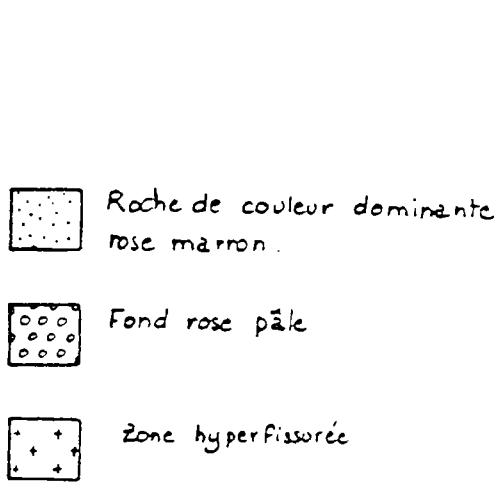 Roche de couleur dominante
rose marron.
Fond rose pâle
Zone hyperfissurée